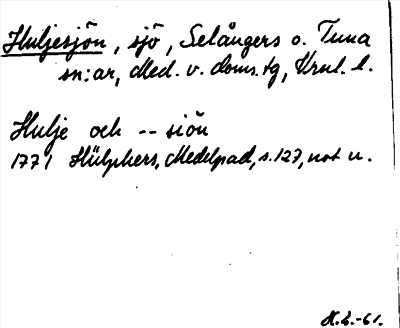 Huljesjön, sjö, Selångers o. Tuna
sn:ar, Med. v. doms.tg, Vrnl. l.
Hulje och -- siön
1771 Hülphers, Medelpad, s.127, not u.
H.L.-61.